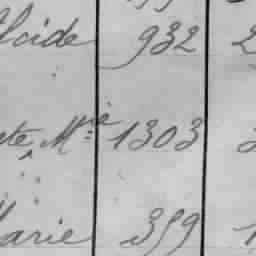 lcide 932 2
te, Mie 1303
arie 359 1